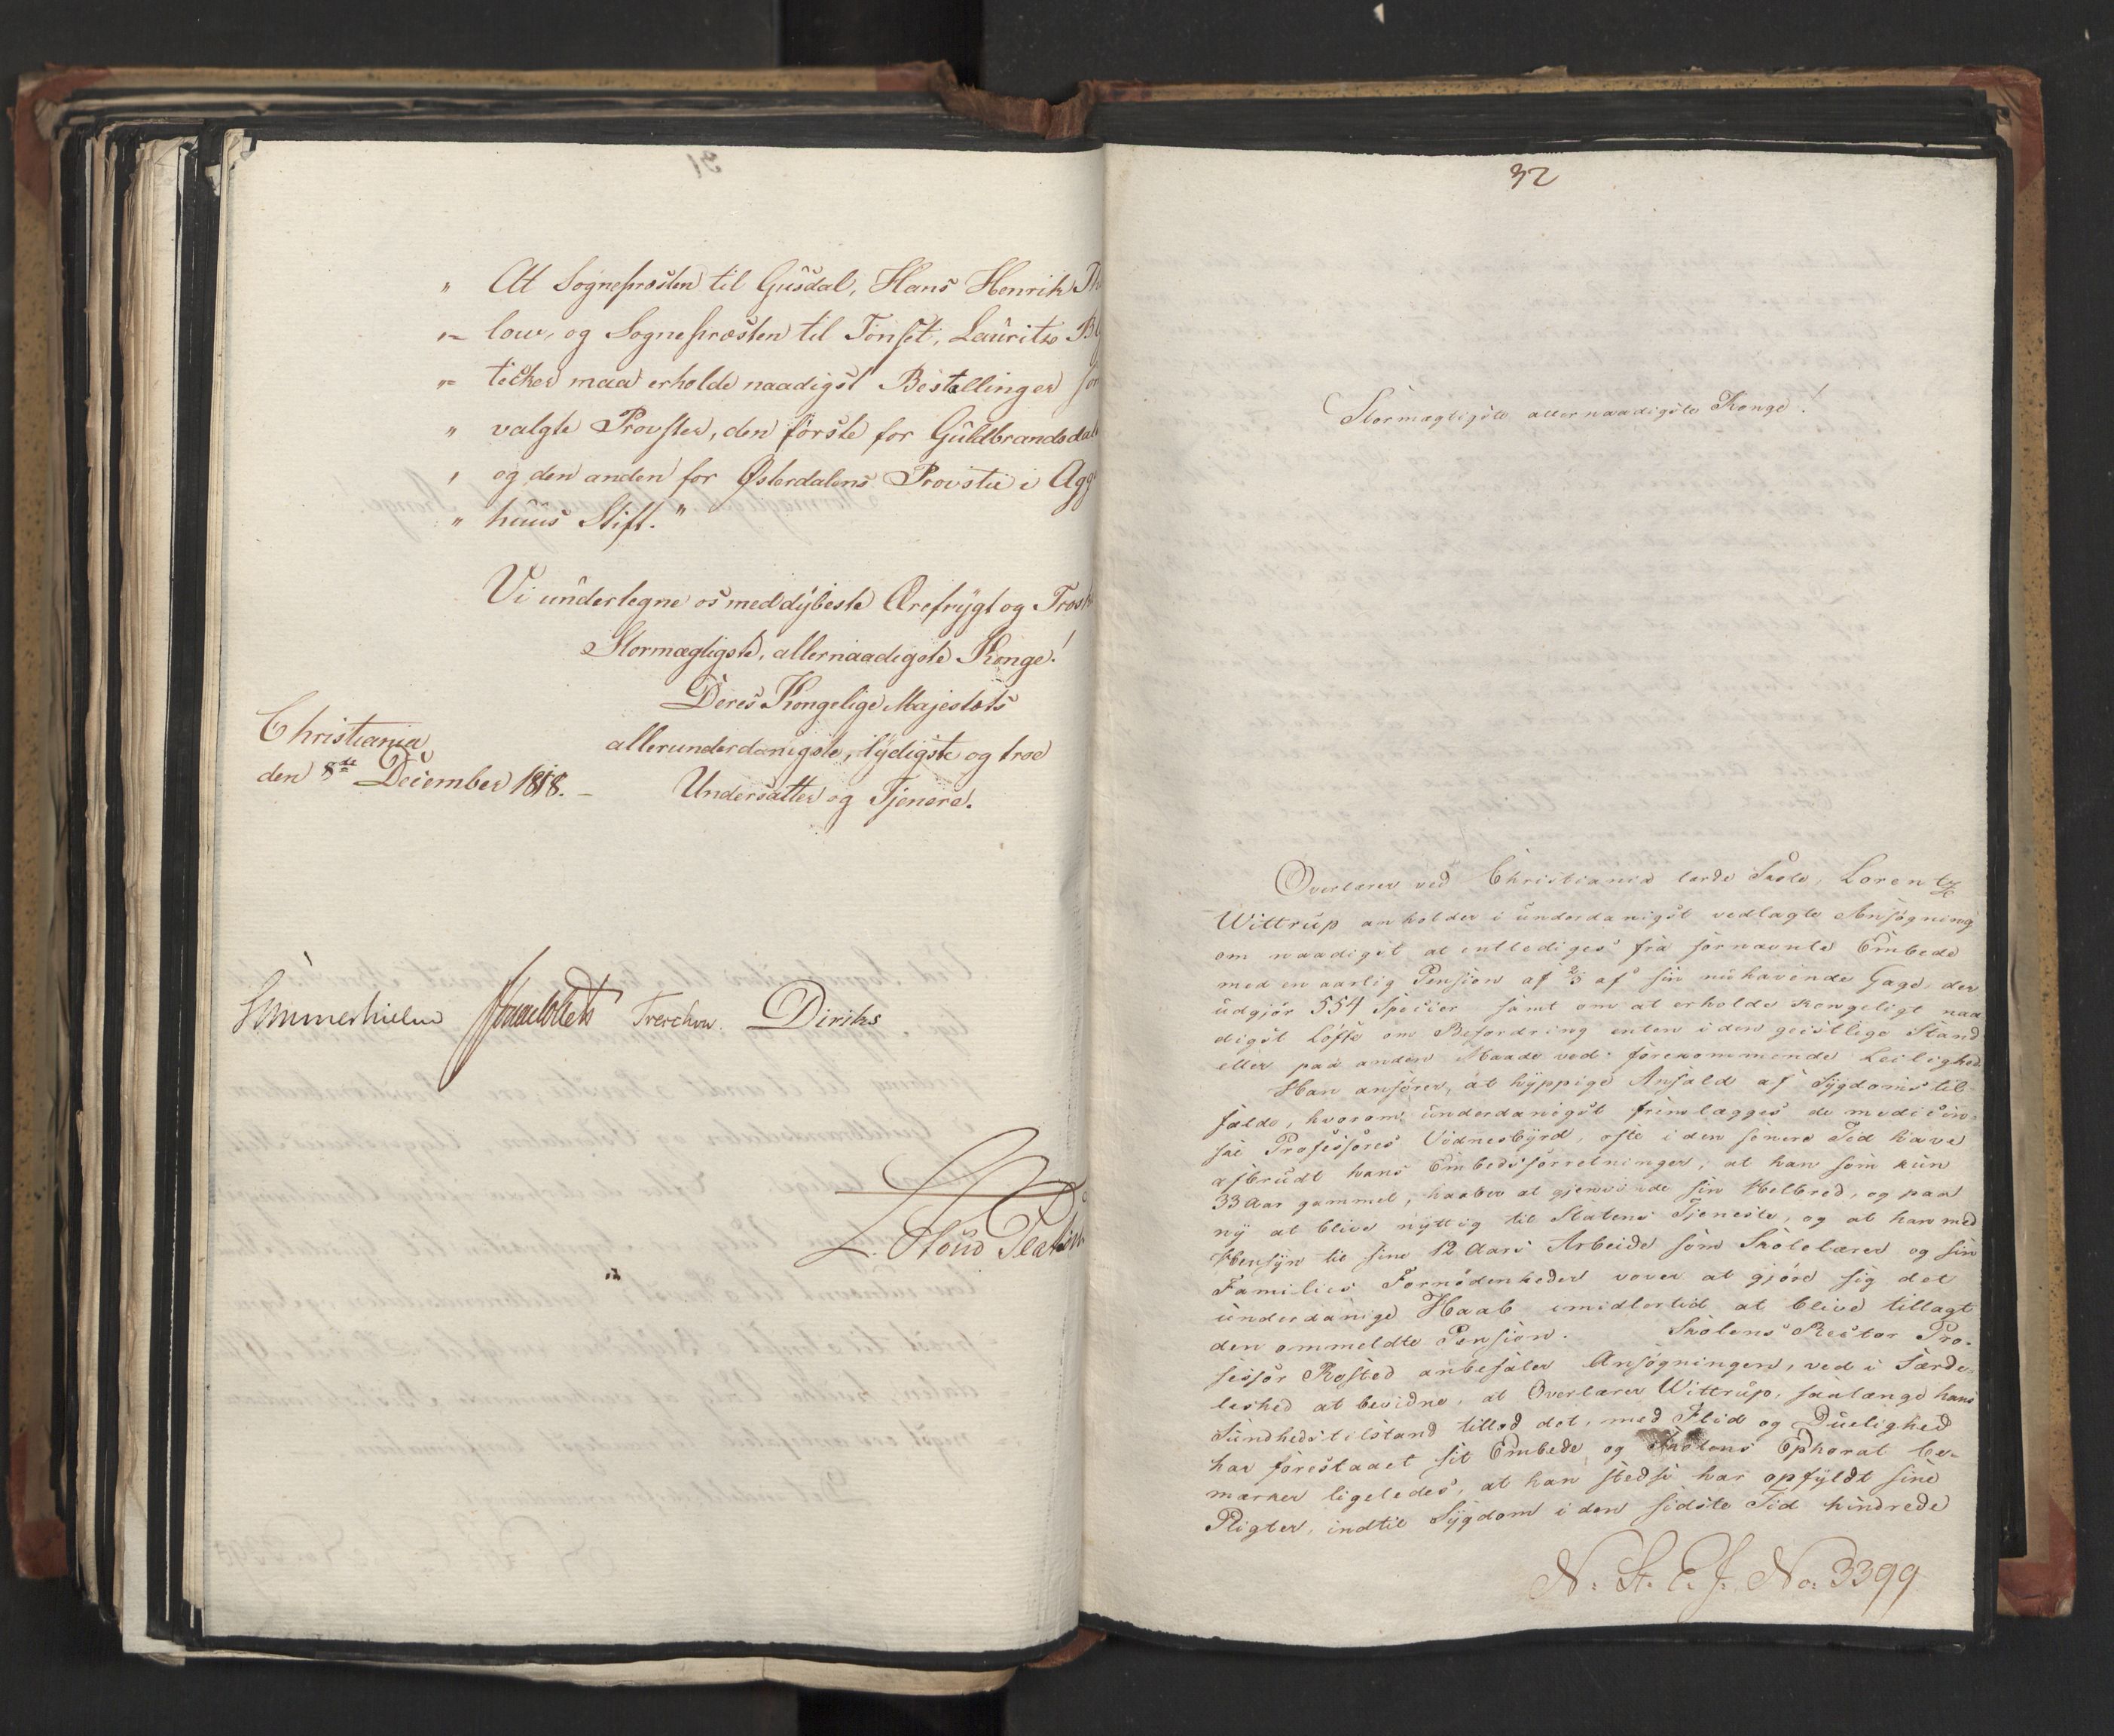 " At Sognepræsten til Gusdal, Hans Henrik Th
"= low, og Sognepræsten til Tønset, Lauritz Bl
"= tecker maa erholde naadigst Bestallinger som
" valgte Provster, den første for Guldbrandsdal
" og den anden for Østerdalens Provstie i Agg
" huus Stift."
Vi undertegne os med dybeste Ærefrygt og Trosk
Stormægtigste, allernaadigste Konge!
Deres Kongelige Majestæts
allerunderdanigste, lydigste og troe
Undersatter og Tjenere.
Christiania
den 8de December 1818. -
Sommerhielm Treschow. Diriks
L. Stoud Platou
32
Stormægtigste allernaadigste Konge!
Overlærer ved Christiania lærde Skole, Lorentz
Wittrup anholder i underdanigst vedlagte Ansøgning
om naadigst at entlediges fra fornævnte Embede
med en aarlig Pension af 2/3 af sin nuhavende Gage, der
udgjør 554 Specier samt om at erholde Kongeligt naa
digst Løfte om Befordring enten i den geistlige Stand
eller paa anden Maade ved forekommende Leilighed
Han anfører, at hyppige Anfald af Sygdomstil-
fælde, hvorom underdanigst fremlægges de medicin-
ske Professores Vidnesbyrd, ofte i den senere Tid have
afbrudt hans Embedsforretninger, at han som kun
33 Aar gammel, haaber at gjenvinde sin Helbred, og paa
ny at blive nyttig til Statens Tjeneste, og at han med
Hensyn til sine 12 Aars Arbeide som Skolelærer og sin
Families Fornødenheder vover at gjøre sig det
underdanige Haab imidlertid at blive tillagt
den ommeldte Pension. Skolens Rector Pro-
fessor Rosted anbefaler Ansøgningen, ved i Særde-
leshed at bevidne, at Overlærer Wittrup, saalænge hans
Sundhedstilstand tillod det, med Flid og Duelighed
har forestaaet sit Embede, og Skolens Ephorat be-
mærker ligeledes, at han stedse har opfyldt sine
Pligter, indtil Sygdom i den sidste Tid hindrede
N. St. E. J. No. 3399